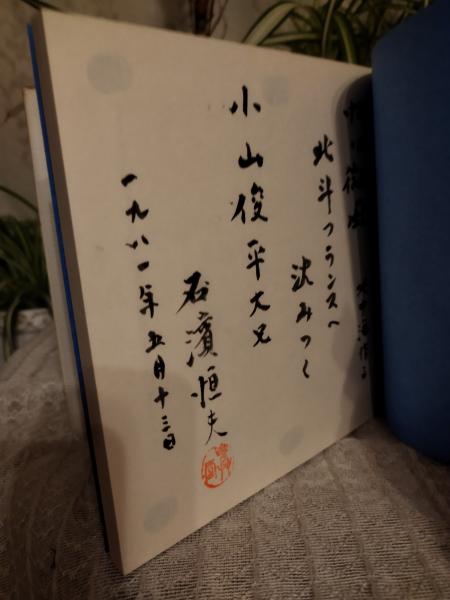 北斗フランスへ
沈みつく
小山俊平大兄
石濱恒夫
一九八一年五月十三日